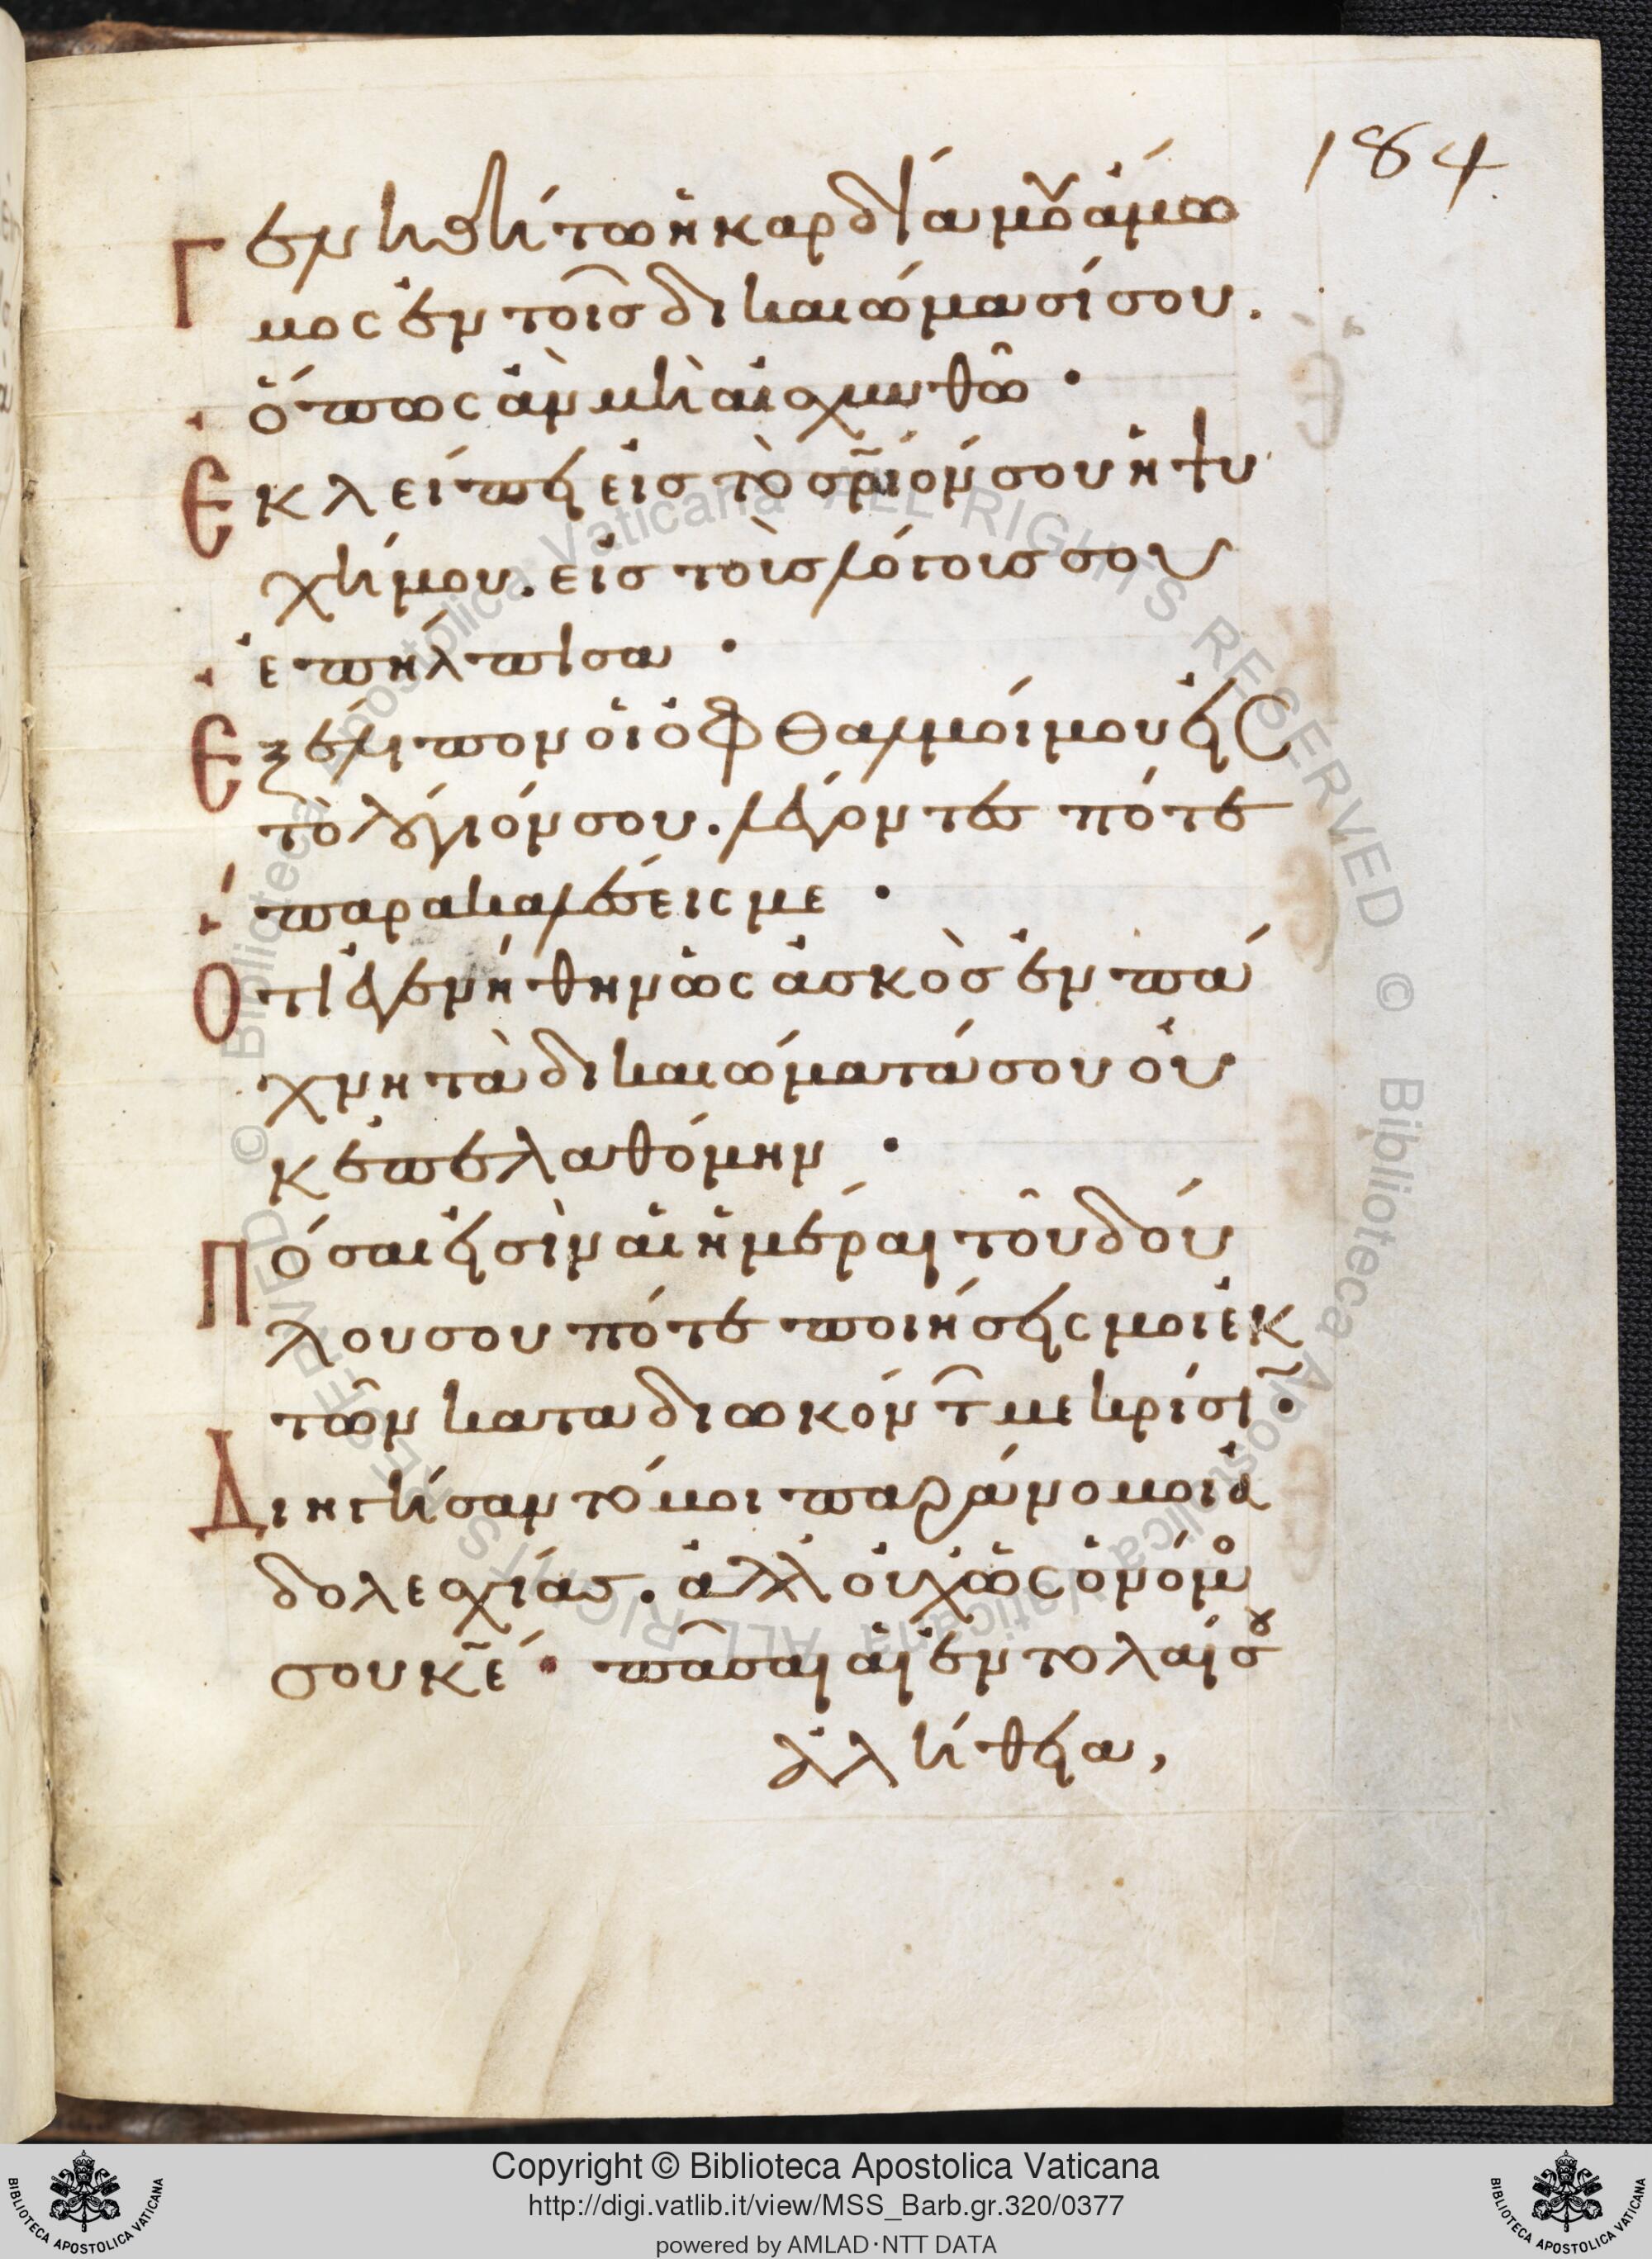 184
Γενηθήτω ἡ καρδία μου ἄμω
μος ἐν τοῖς δικαιώμασί σου.
ὅπως ἂν μὴ αἰσχυνθῶ ·
Ἐκλείπει εἰς τὸ σ̅ρ̅ιόν σου ἡ ψυ
χή μου. εἰς τοὺς λόγους σου
ἐπήλπισα ·
Ἐξέλιπον οἱ ὀφθαλμοί μου εἰς
τὸ λόγιόν σου. λέγοντες πότε
παρακαλέσεις με ·
Ὅτι ἐγενήθην ὡς ἀσκὸς ἐν πά
χνη τὰ δικαιώματά σου οὐ
κ ἐπελαθόμην ·
Πόσαι εἰσὶν αἱ ἡμέραι τοῦ δού
λου σου πότε ποιήσεις μοι ἐκ
τῶν καταδιωκόντ με κρίσι ·
Διηγήσαντό μοι παράνομοι ἀ
δολεσχίας. ἀλλ οὐχ ὡς ὁ νόμο
σου κ̅ε · πᾶσαι αἱ ἐντολαί σου
ἀλήθεια,
© Biblioteca Apostolica Vaticana ALL RIGHTS RESERVED © Biblioteca Apostolica Vaticana ALL RIGHTS RESERVED
BIBLIOTECA APOSTOLICA VATICANA
Copyright © Biblioteca Apostolica Vaticana
http://digi.vatlib.it/view/MSS_Barb.gr.320/0377
powered by AMLAD·NTT DATA
BIBLIOTECA APOSTOLICA VATICANA